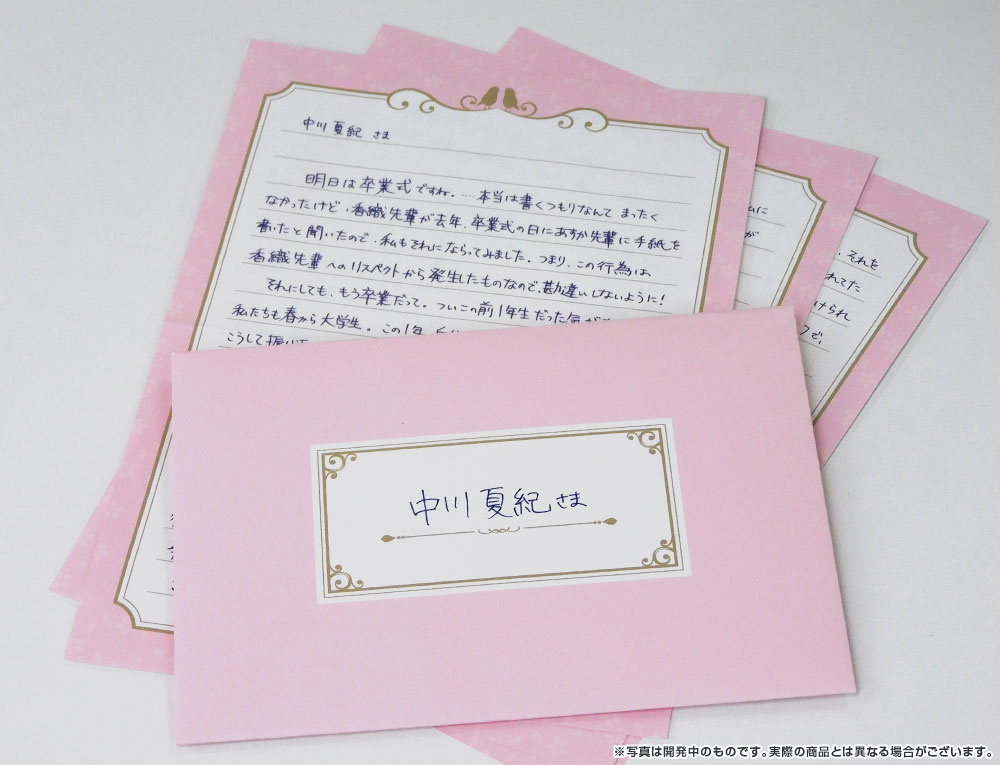 中川夏紀 さま
明日は卒業式ですね。……本当は書くつもりなんて まったく
なかったけど、香織先輩が去年、卒業式の日にあすか先輩に手紙を
書いたと聞いたので、私もそれにならってみました。つまり、この行為は
香織先輩へのリスペクトから発生したものなので、勘違いしないように!
それにしても、もう卒業だって。ついこの前1年生だった気が
私たちも春から大学生。この1年
こうして振り
が
、それを
れてた
けられ
で、
中川夏紀さま
※写真は開発中のものです。実際の商品とは異なる場合がございます。